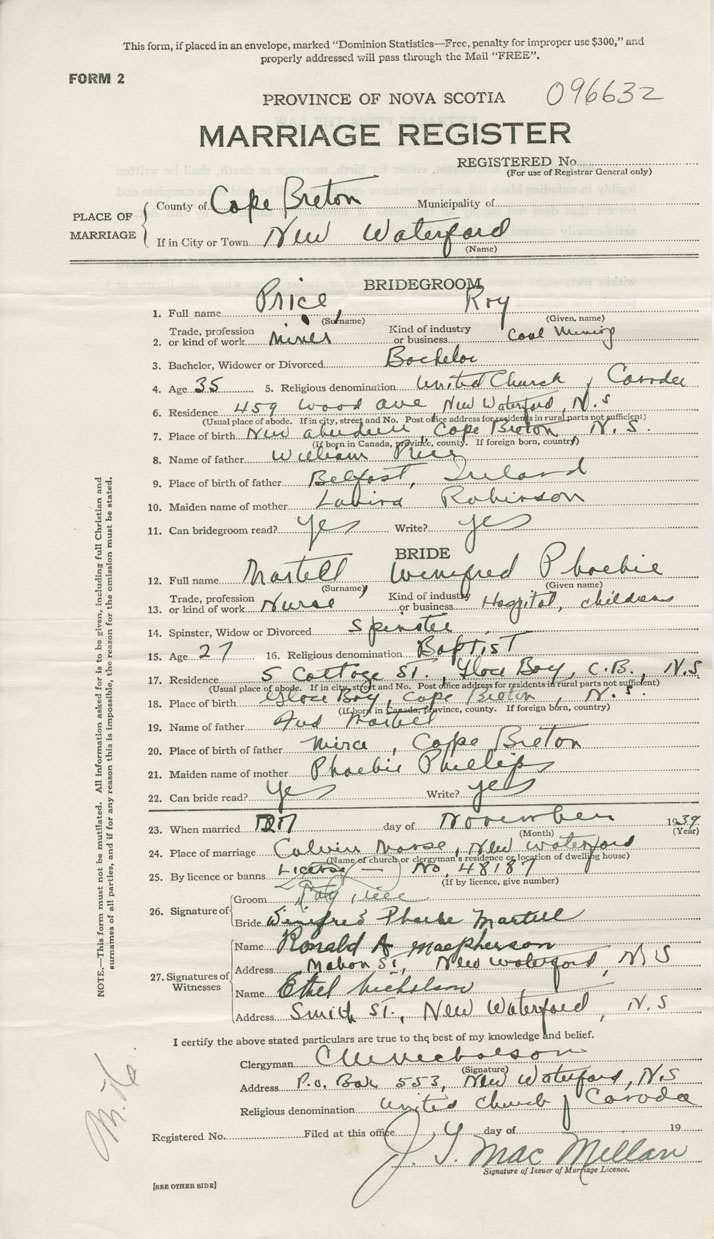 This form, if placed in an envelope, marked "Dominion Statistics—Free, penalty for improper use $300," and
properly addressed will pass through the Mail "FREE".
FORM 2
PROVINCE OF NOVA SCOTIA 096632
MARRIAGE REGISTER
REGISTERED No.
(For use of Registrar General only)
PLACE OF MARRIAGE
County of Cape Breton Municipality of
If in City or Town New Waterford
(Name)
BRIDEGROOM
1. Full name Price, Roy
(Surname) (Given name)
2. Trade, profession or kind of work miner Kind of industry or business Coal Mining
3. Bachelor, Widower or Divorced Bachelor
4. Age 35 5. Religious denomination United Church of Canada
6. Residence 459 Wood Ave New Waterford, N.S
(Usual place of abode. If in city, street and No. Post office address for residents in rural parts not sufficient)
7. Place of birth New Aberdeen Cape Breton, N.S.
(If born in Canada, province, county. If foreign born, country)
8. Name of father William Price
9. Place of birth of father Belfast, Ireland
10. Maiden name of mother Robinson
11. Can bridegroom read? Yes Write? yes
BRIDE
12. Full name Martell Winifred Phoebie
(Surname) (Given name)
13. Trade, profession or kind of work Nurse Kind of industry or business Hospital, childrens
14. Spinster, Widow or Divorced Spinster
15. Age 27 16. Religious denomination Baptist
17. Residence 5 Cottage St., Glace Bay, C.B., N.S
(Usual place of abode. If in city, street and No. Post office address for residents in rural parts not sufficient)
18. Place of birth Glace Bay, Cape Breton, N.S.
(If born in Canada, province, county. If foreign born, country)
19. Name of father Martell
20. Place of birth of father Mira, Cape Breton
21. Maiden name of mother Phoebie Phillips
22. Can bride read? Yes Write? yes
23. When married day of November 1939
(Month) (Year)
24. Place of marriage Calvin Manse, New Waterford
(Name of church or clergyman's residence or location of dwelling house)
25. By licence or banns License — No. 48187
(If by licence, give number)
26. Signature of
Groom Roy Price
Bride Winifred Phoebe Martell
27. Signatures of Witnesses
Name Ronald A Macpherson
Address Mahon St., New Waterford, N.S
Name Ethel Nicholson
Address Smith St., New Waterford, N.S
I certify the above stated particulars are true to the best of my knowledge and belief.
Clergyman Nicholson
(Signature)
Address P.O. Box 553, New Waterford, N.S
Religious denomination United Church of Canada
Registered No. Filed at this office day of 19
J. Y. MacMillan
Signature of Issuer of Marriage Licence.
[SEE OTHER SIDE]
NOTE.—This form must not be mutilated. All Information asked for is to be given, including full Christian and
surnames of all parties, and if for any reason this is impossible, the reason for the omission must be stated.